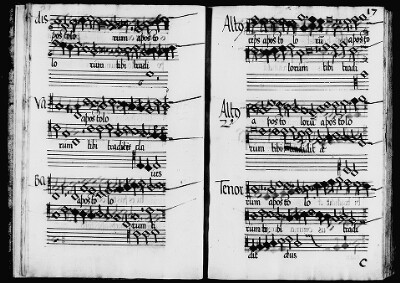 dis
pos tolo rum apos to
lo rum tibi tradi
Va
apos tolo
rum tibi tradidit cla
ues
Ba
rum apos to lo
rum ti
17
Alto
ceps apos to lo rū apos to
lorum tibi tradi
Alto
2
a pos to lorū apos to lo
rum tibi tradidit
Tenor
rum apos to lo
rum ti bi tradi
dit
C